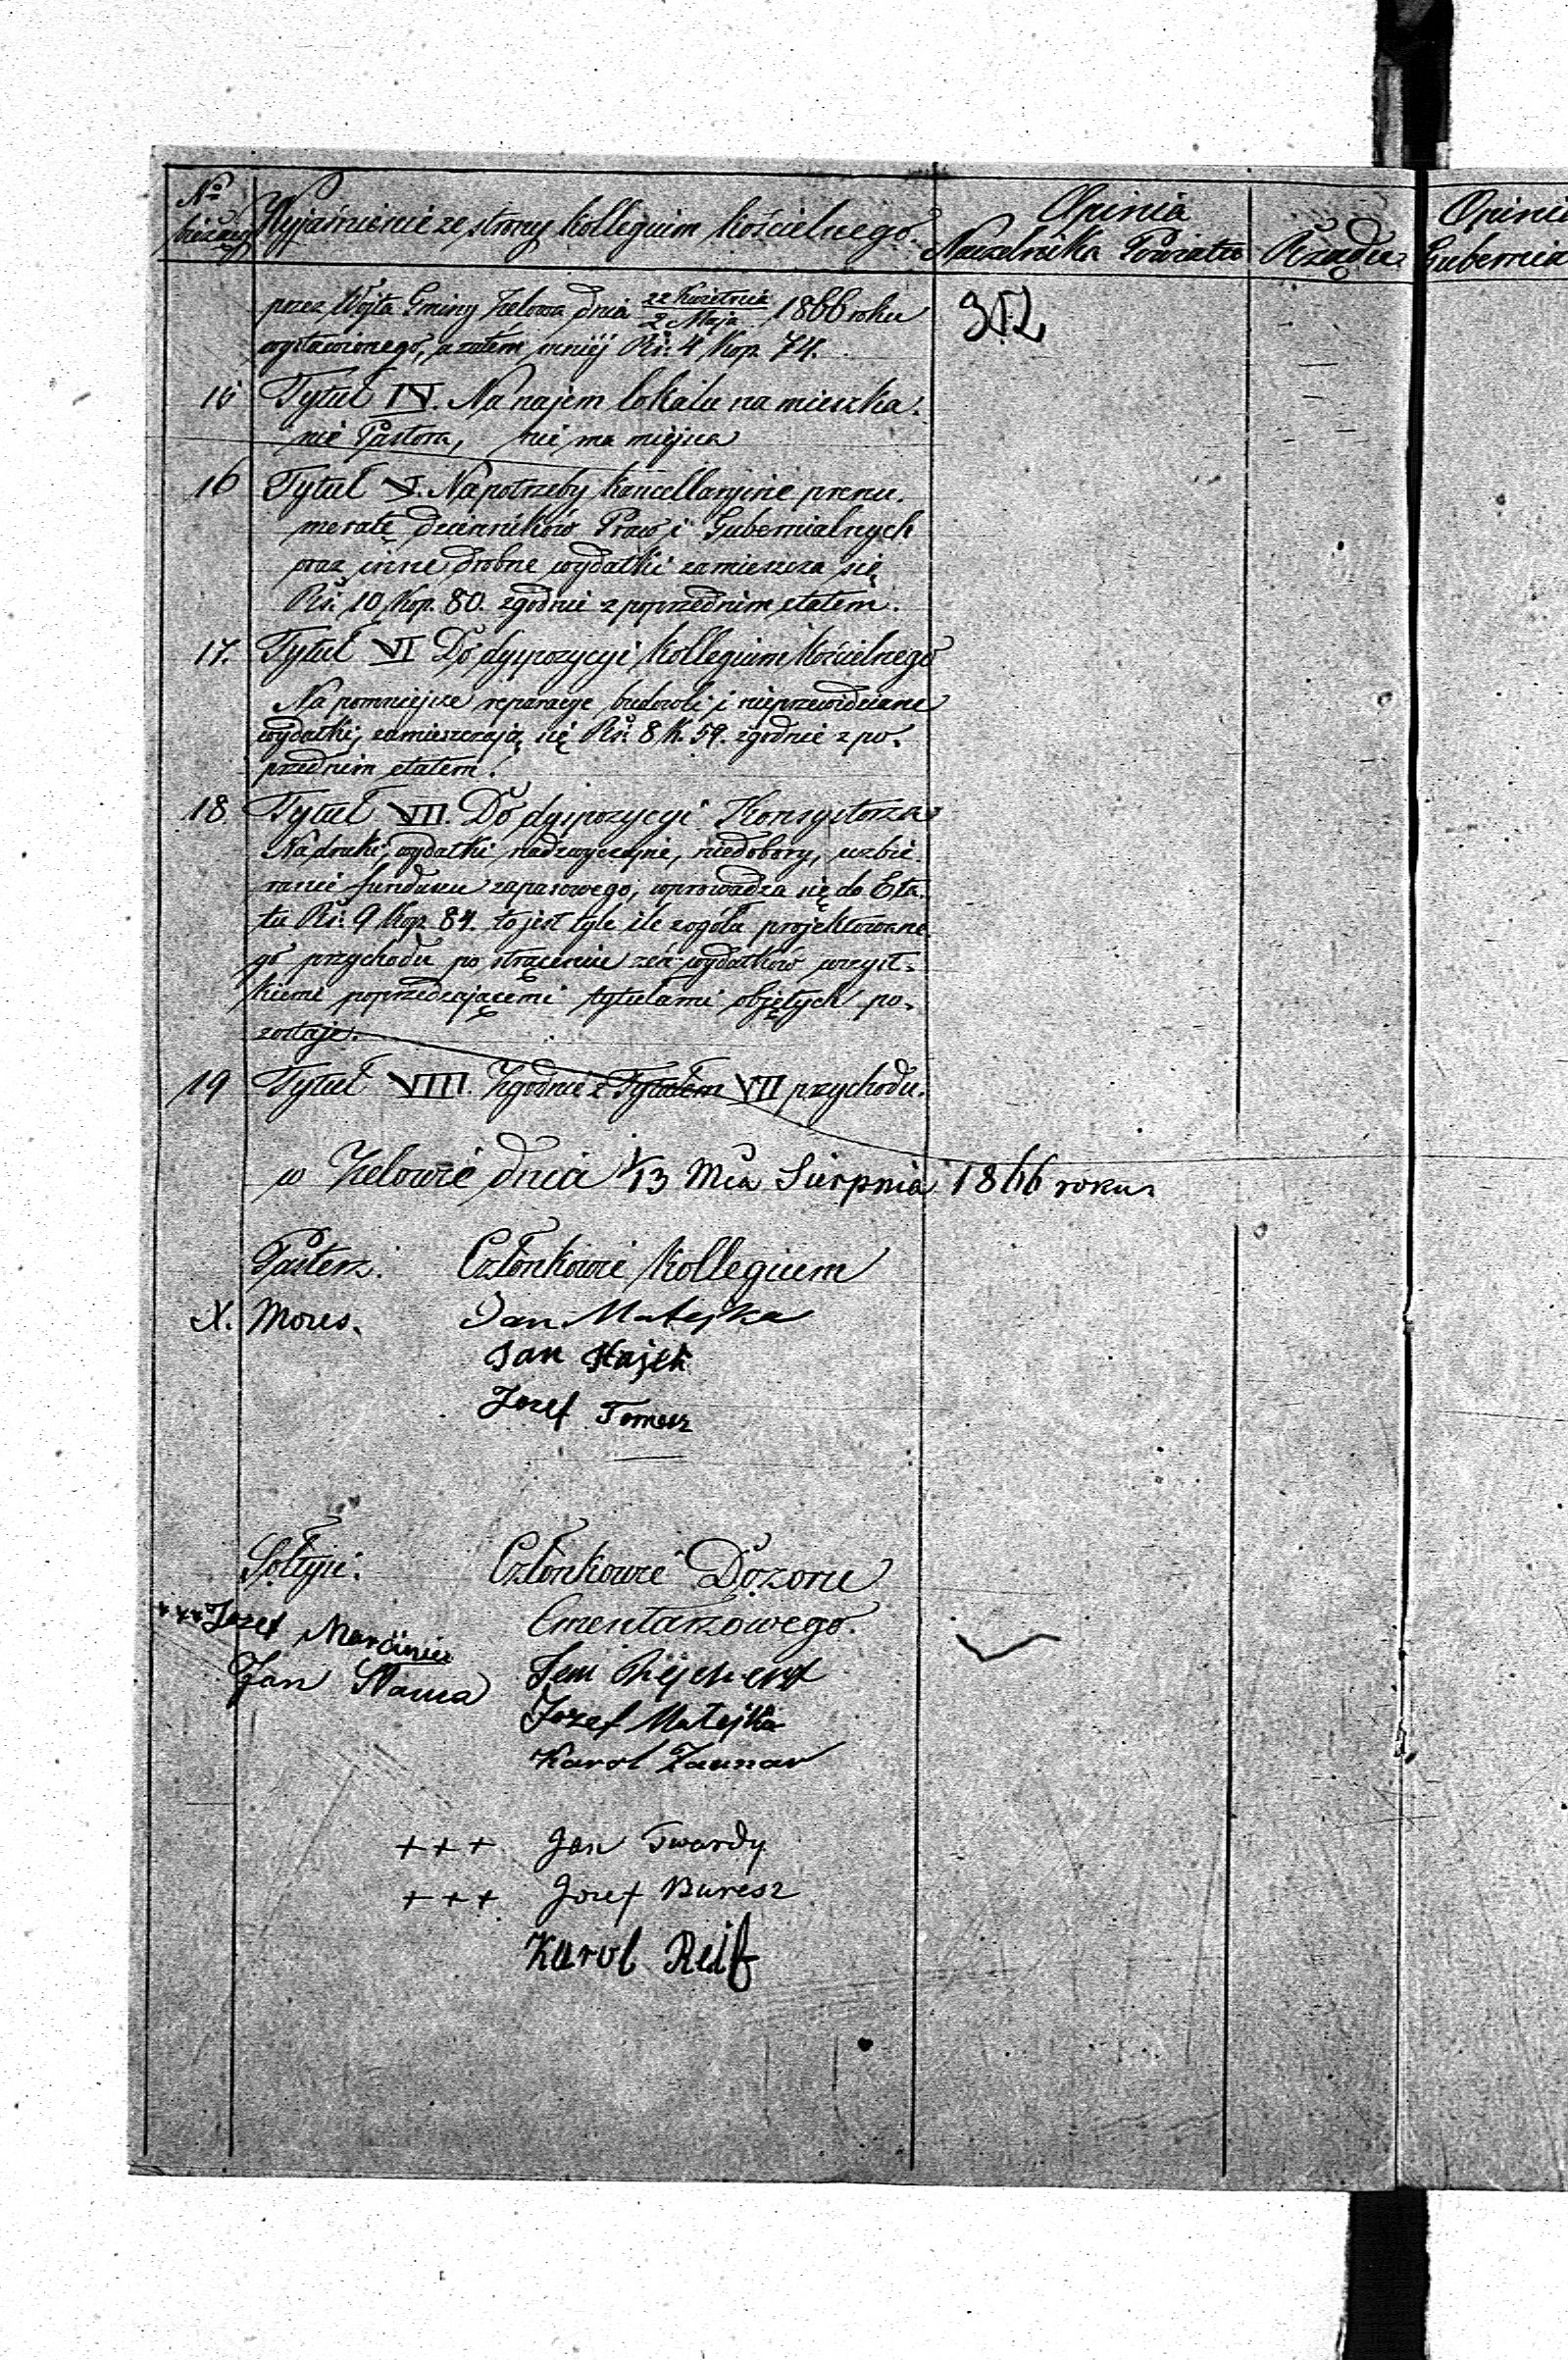 No bieżący
Wyjaśnienie ze strony Kollegium Kościelnego.
Opinia
Naczelnika Powiatu
Rządu
Opini
Gubernia
przez Wójta Gminy Zelowa dnia 22 Kwietnia / 2 Maja 1866 roku
wystawionego, a zatém mniéj Rs. 4 Kop. 74.
352
15 Tytuł IV. Na najem lokalu na mieszka-
nie Pastora, nie ma miejsca
16 Tytuł V. Na potrzeby kancellaryjne prenu-
meratę dzienników Praw i Gubernialnych
oraz inne drobne wydatki zamieszcza się
Rs. 10 Kop. 80. zgodnie z poprzednim etatem.
17. Tytuł VI Do dyspozycyi Kollegium Kościelnego
Na pomniejsze reparacye budowli i nieprzewidziane
wydatki, zamieszczają się Rs. 8 K. 59. zgodnie z po-
przednim etatem.
18 Tytuł VII. Do dyspozycyi Konsystorza
Na druki, wydatki nadzwyczajne, niedobory, uzbie-
ranie funduszu zapasowego, wprowadza się do Eta-
tu Rs. 9 Kop. 84. to jest tyle ile z ogółu projektowane-
go przychodu po strąceniu zeń wydatków wszyst-
kiemi poprzedzającemi tytułami objętych po-
zostaje.
19 Tytuł VIII. Zgodnie z Tytułem VII przychodu.
w Zelowie dnia 1/13 Mca Sierpnia 1866 roku
Pasterz. Członkowie Kollegium
X. Mozes. Jan Matejka
Jan Hajek
Jozef Tomesz
Sołtysi. Członkowie Dozoru
Cmentarzowego.
+++ Jozef Marciniec
Jan Slama
Jozef Matejka
Karol Zaunar
+++ Jan Twardy
+++ Jozef Buresz
Karol Reif